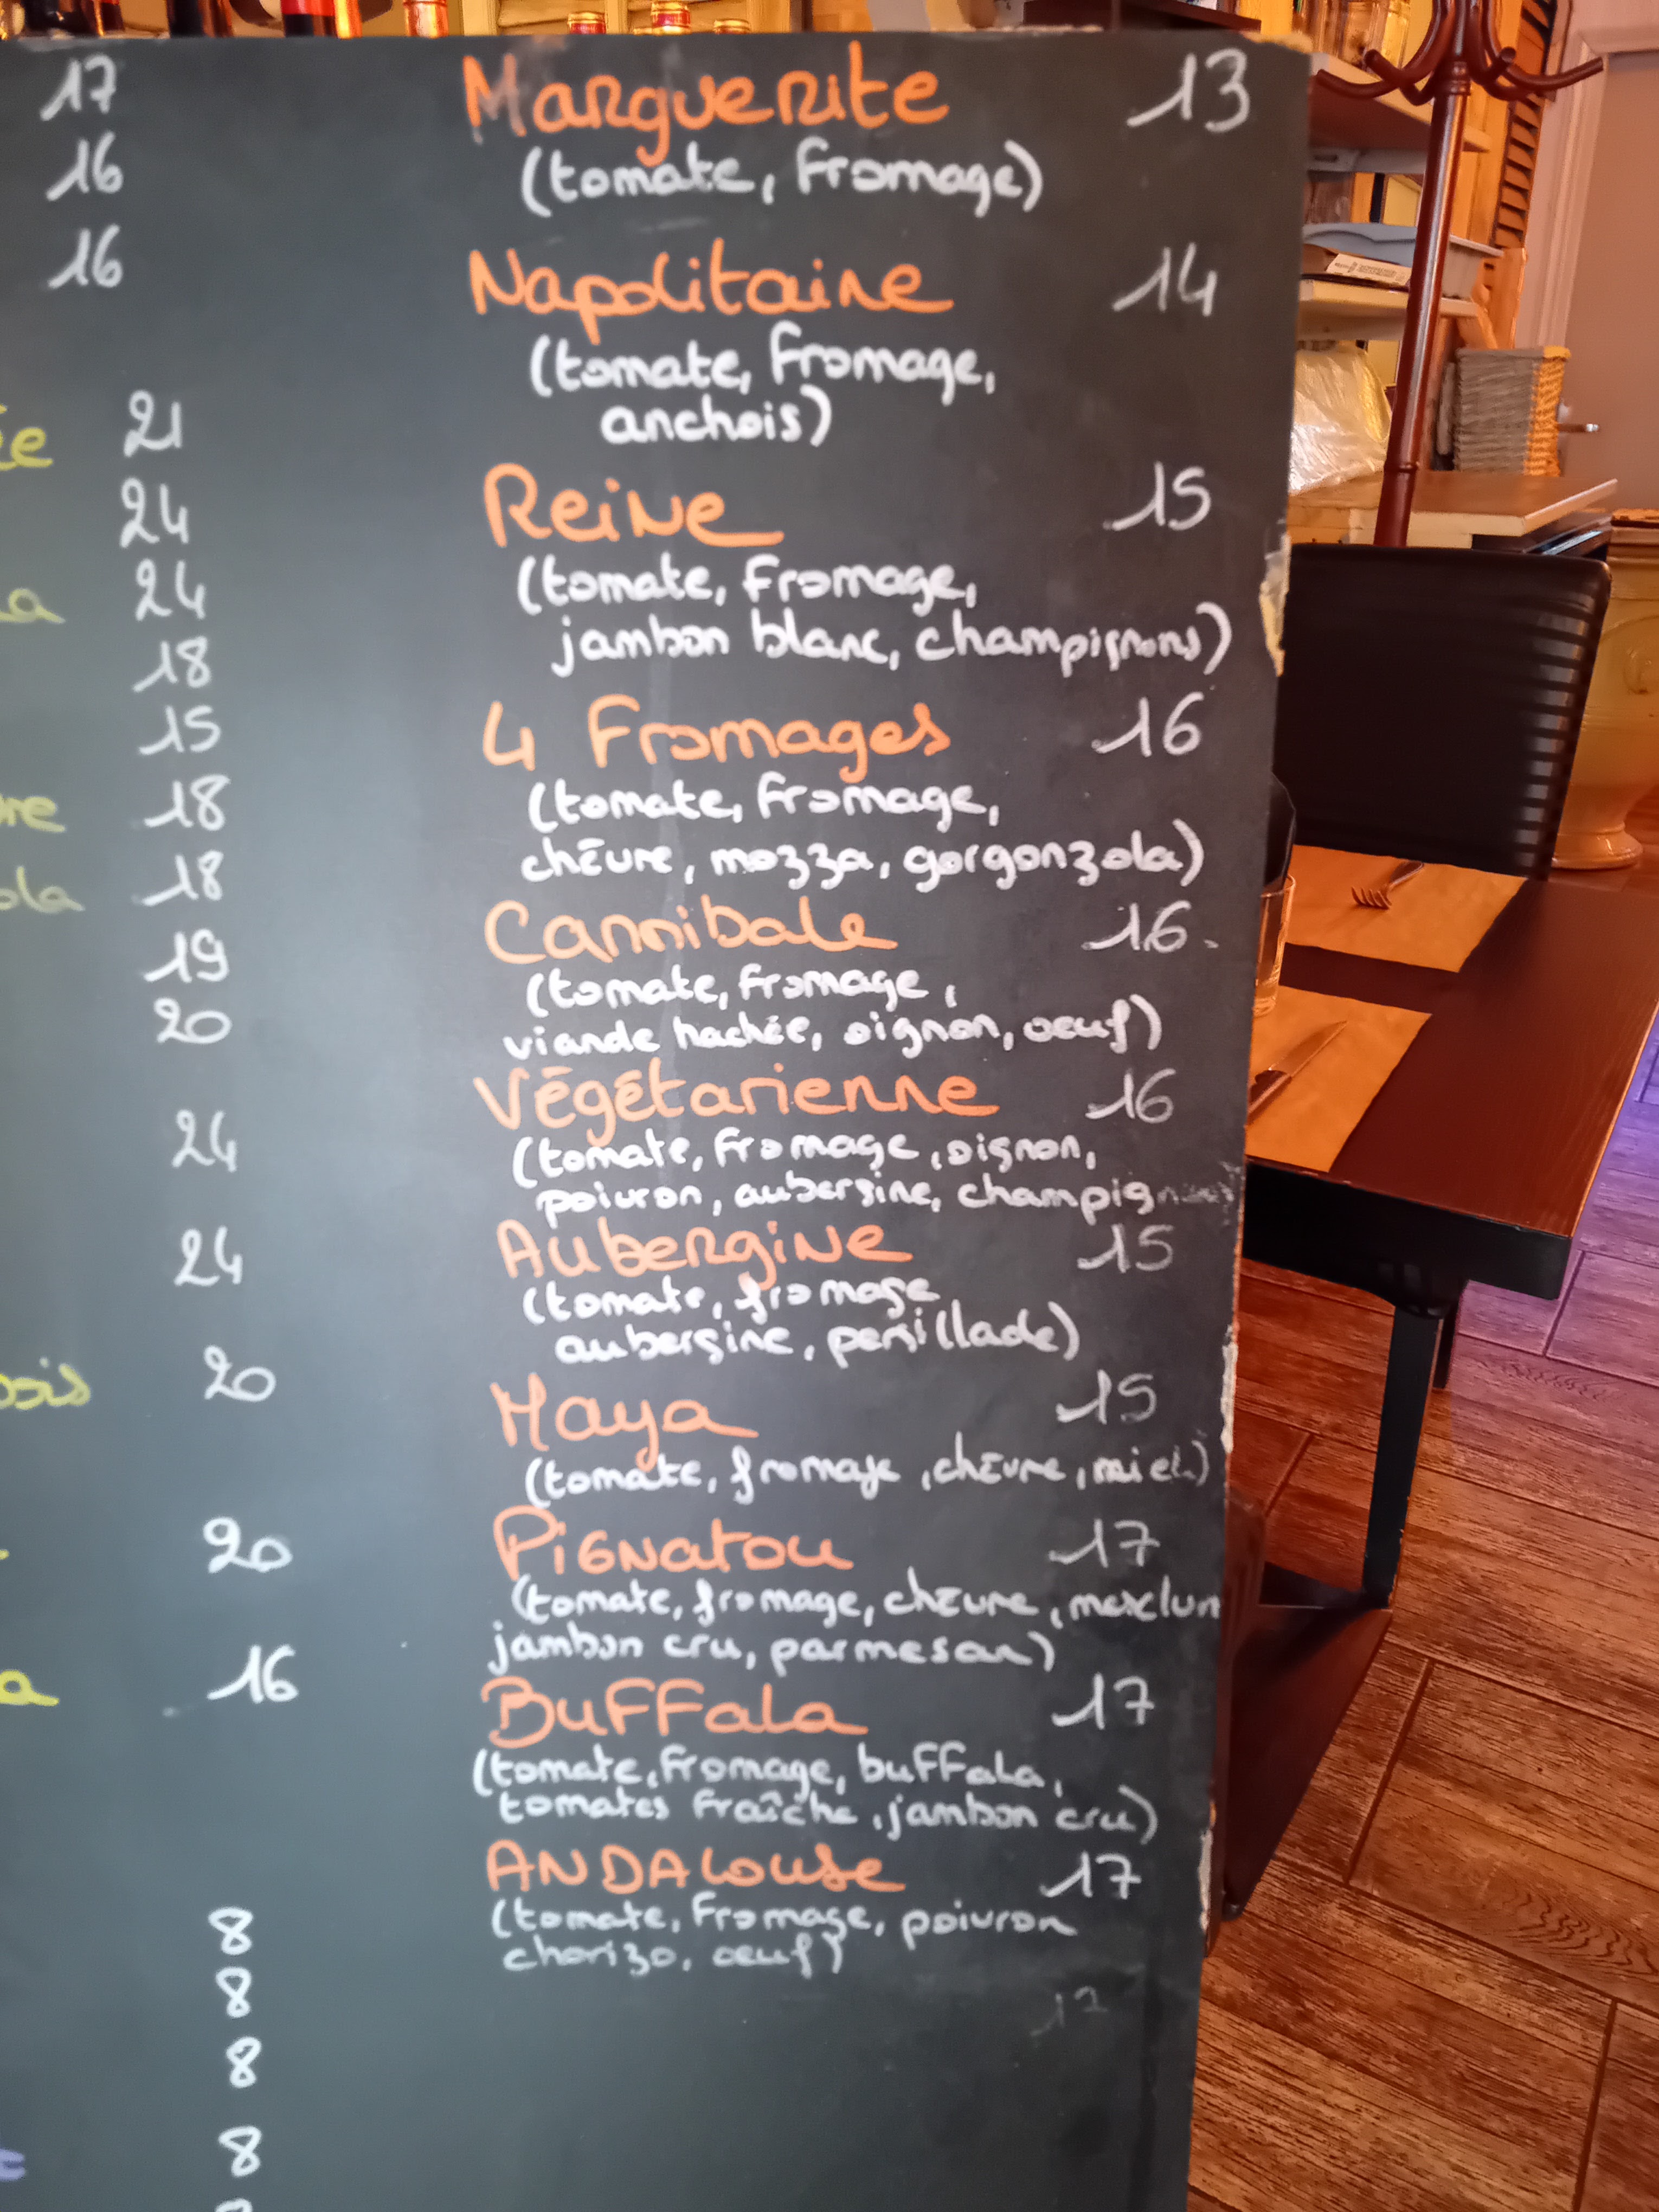 17
16
16
21
24
24
18
15
18
18
19
20
24
24
20
20
16
8
8
8
8
Marguerite 13
(tomate, fromage)
Napolitaine 14
(tomate, fromage,
anchois)
Reine 15
(tomate, fromage,
jambon blanc, champignons)
4 Fromages 16
(tomate, fromage,
chèvre, mozza, gorgonzola)
Cannibale 16
(tomate, fromage,
viande hachée, oignon, oeuf)
Végétarienne 16
(tomate, fromage, oignon,
poivron, aubergine, champignons
Aubergine 15
(tomate, fromage
aubergine, persillade)
Maya 15
(tomate, fromage, chèvre, miel)
Pignatou 17
(tomate, fromage, chèvre, mesclun
jambon cru, parmesan)
Buffala 17
(tomate, fromage, buffala,
tomates fraîche, jambon cru)
ANDALouse 17
(tomate, fromage, poivron
chorizo, oeuf)
17